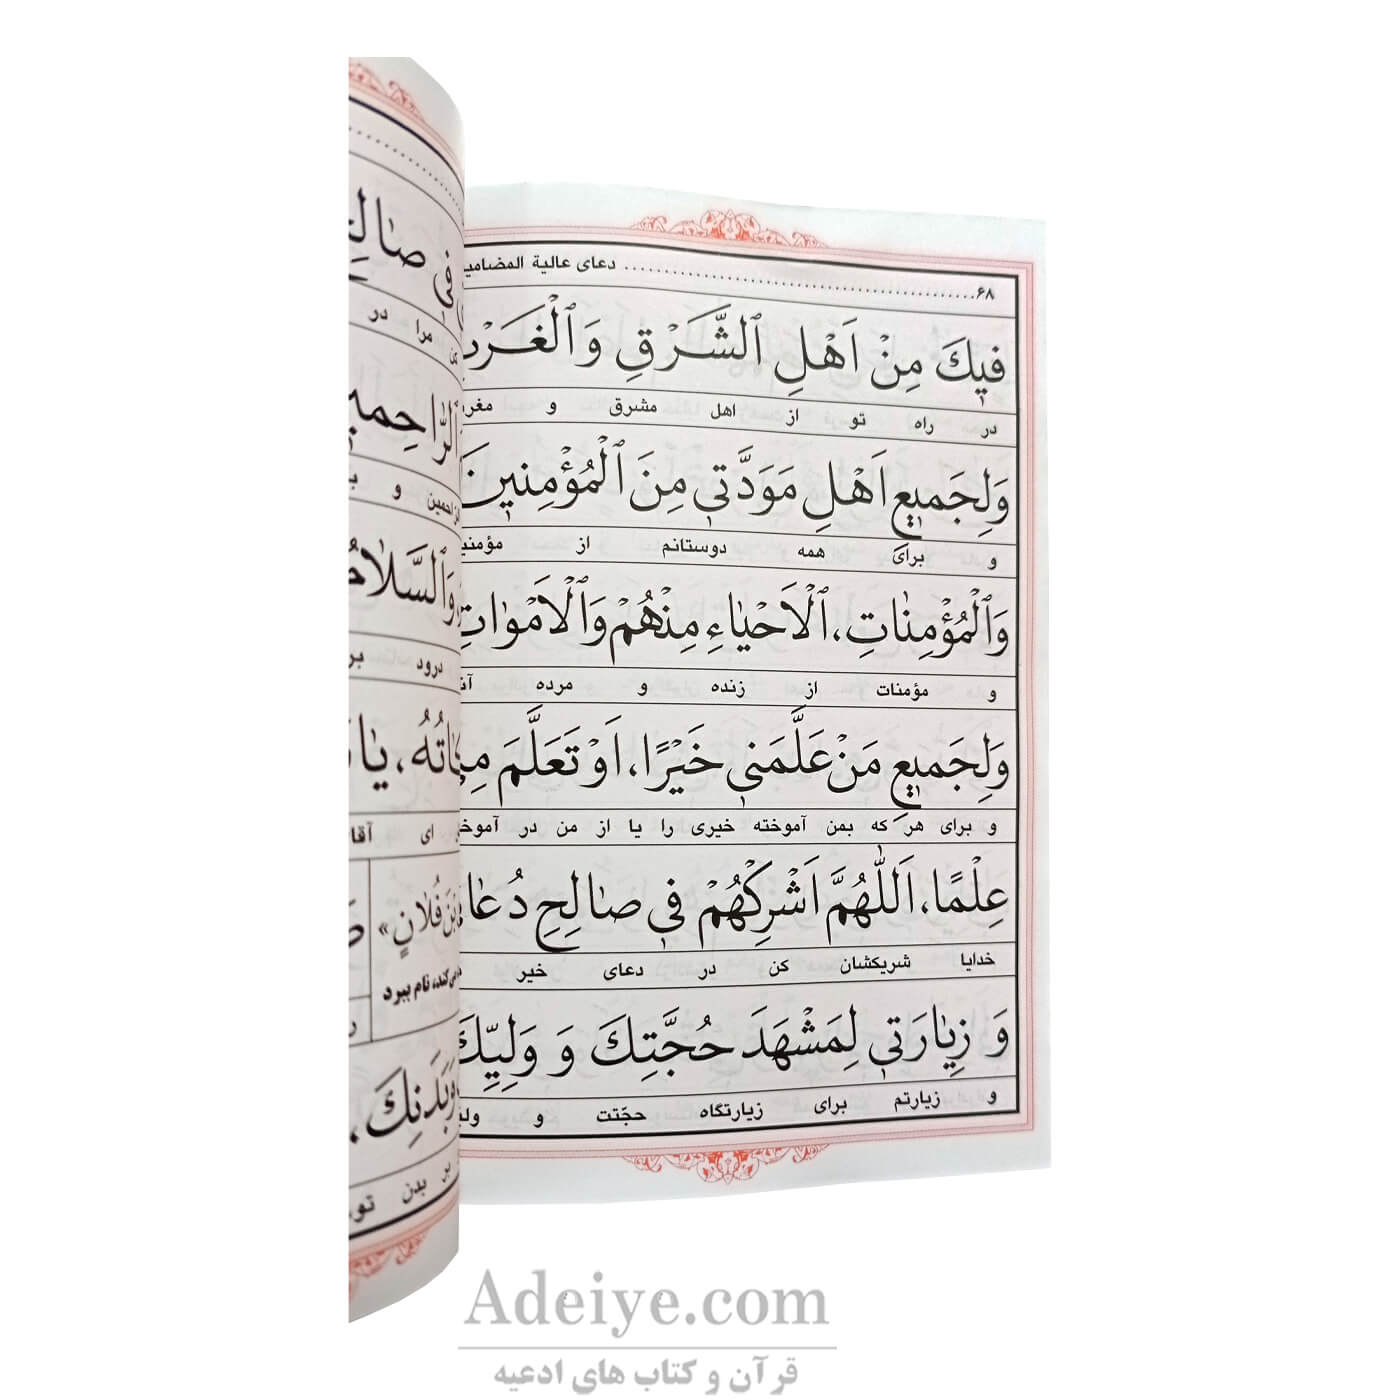 ۶۸ دعای عالیة المضامین
فیكَ مِنْ اَهْلِ ٱلشَّرْقِ وَٱلْغَرْبِ
در راه تو از اهل مشرق و مغرب
وَلِجَمیعِ اَهْلِ مَوَدَّتی مِنَ ٱلْمُؤْمِنینَ
و برای همه دوستانم از مؤمنین
وَٱلْمُؤْمِنٰاتِ، ٱلْاَحْیٰاءِ مِنْهُمْ وَٱلْاَمْوٰاتِ
و مؤمنات از زنده و مرده
وَلِجَمیعِ مَنْ عَلَّمَنی خَیْرًا، اَوْ تَعَلَّمَ مِنّی
و برای هر که بمن آموخته خیری را یا از من در
عِلْمًا، اَللّٰهُمَّ اَشْرِكْهُمْ فی صٰالِحِ
خدایا شریکشان کن در دعای خیر
وَ زِیٰارَتی لِمَشْهَدِ حُجَّتِكَ وَ وَلِیِّكَ
و زیارتم برای زیارتگاه حجّتت و
فی
مرا در
وَ
وَٱلسَّلامُ
درود
ای
بْنَ فُلانٍ»
نام ببرد
وَبَدَنِكَ،
بر بدن تو
Adeiye.com
قرآن و کتاب های ادعیه